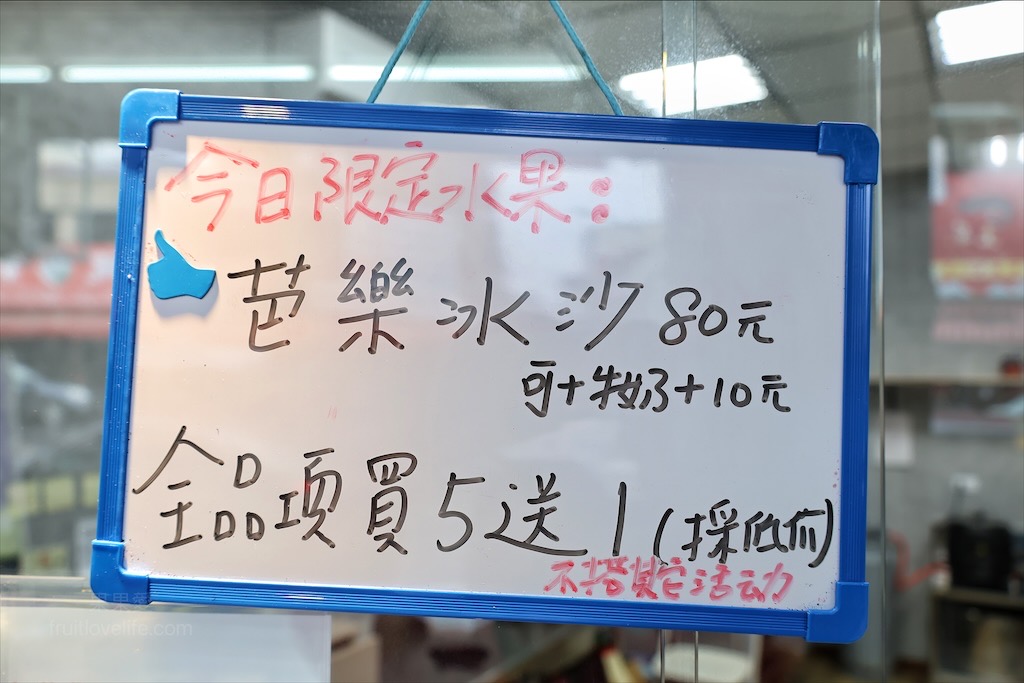 今日限定水果:
芭樂冰沙80元
可+牧奶+10元
全品項買5送1(採低價)
不搭其它活动
fruitlovelife.com